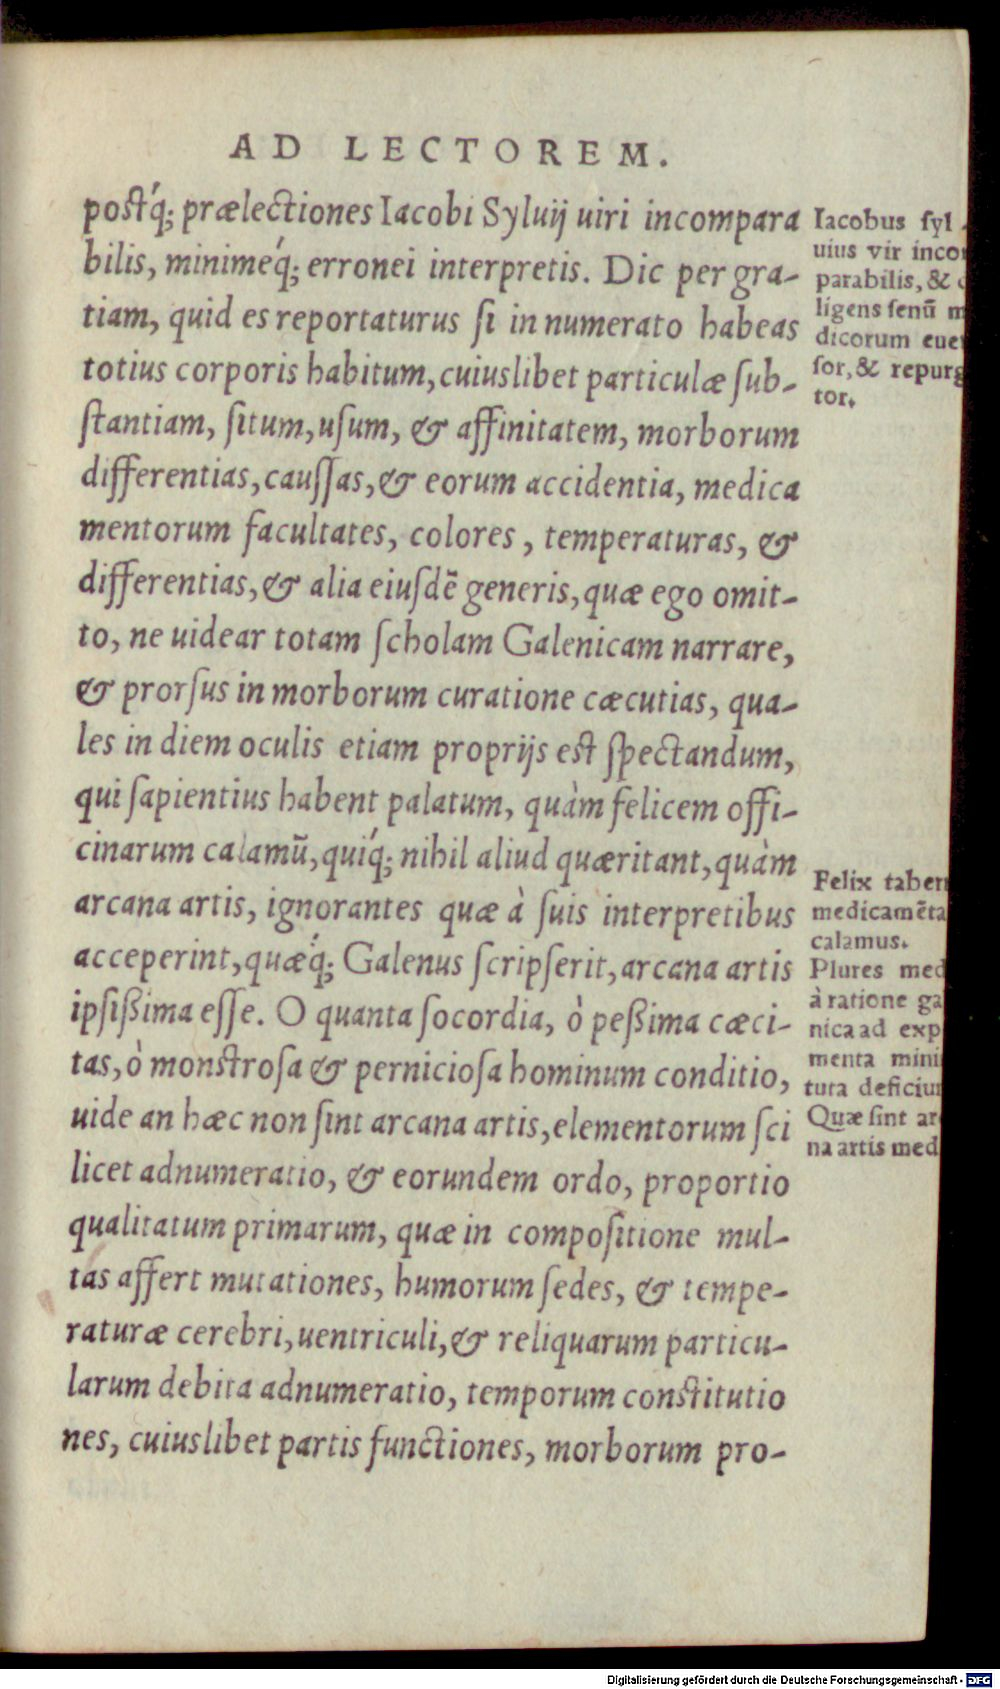 AD LECTOREM.
postq́; prælectiones Iacobi Syluij uiri incompara
bilis, minimeq́; erronei interpretis. Dic per gra-
tiam, quid es reportaturus ſi in numerato habeas
totius corporis habitum, cuiuslibet particulæ ſub-
ſtantiam, ſitum, uſum, & affinitatem, morborum
differentias, cauſſas, & eorum accidentia, medica
mentorum facultates, colores, temperaturas, &
differentias, & alia eiuſdē generis, quæ ego omit-
to, ne uidear totam ſcholam Galenicam narrare,
& prorſus in morborum curatione cæcutias, qua-
les in diem oculis etiam proprijs est ſpectandum,
qui ſapientius habent palatum, quàm felicem offi-
cinarum calamū, quiq́; nihil aliud quæritant, quàm
arcana artis, ignorantes quæ à ſuis interpretibus
acceperint, quæq́; Galenus ſcripſerit, arcana artis
ipſißima eſſe. O quanta ſocordia, ò peßima cæci-
tas, ò monstroſa & pernicioſa hominum conditio,
uide an hæc non ſint arcana artis, elementorum ſci
licet adnumeratio, & eorundem ordo, proportio
qualitatum primarum, quæ in compoſitione mul-
tas affert mutationes, humorum ſedes, & tempe-
raturæ cerebri, uentriculi, & reliquarum particu-
larum debita adnumeratio, temporum constitutio
nes, cuiuslibet partis functiones, morborum pro-
Iacobus ſyl-
uius vir incom
parabilis, & d
ligens ſenū m
dicorum euer
ſor, & repurg
tor.
Felix tabern
medicamēta
calamus.
Plures med
à ratione ga
nica ad exp
menta mini
tuta deficiun
Quæ ſint arc
na artis med
Digitalisierung gefördert durch die Deutsche Forschungsgemeinschaft - DFG